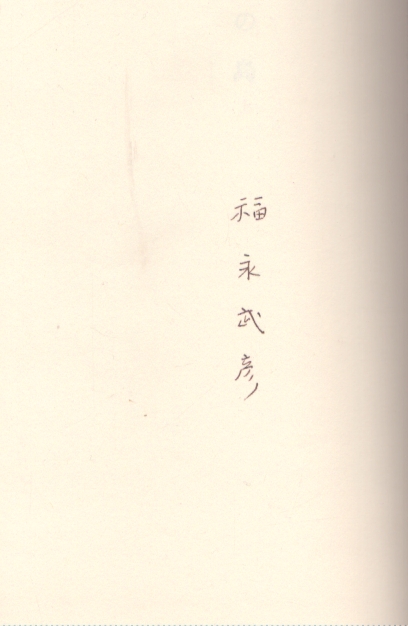 福永武彦